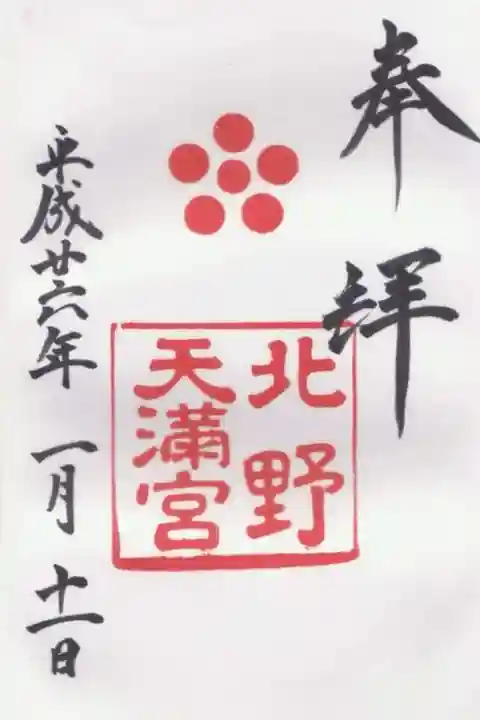 奉拝
北野
天満宮
平成廿六年一月十一日